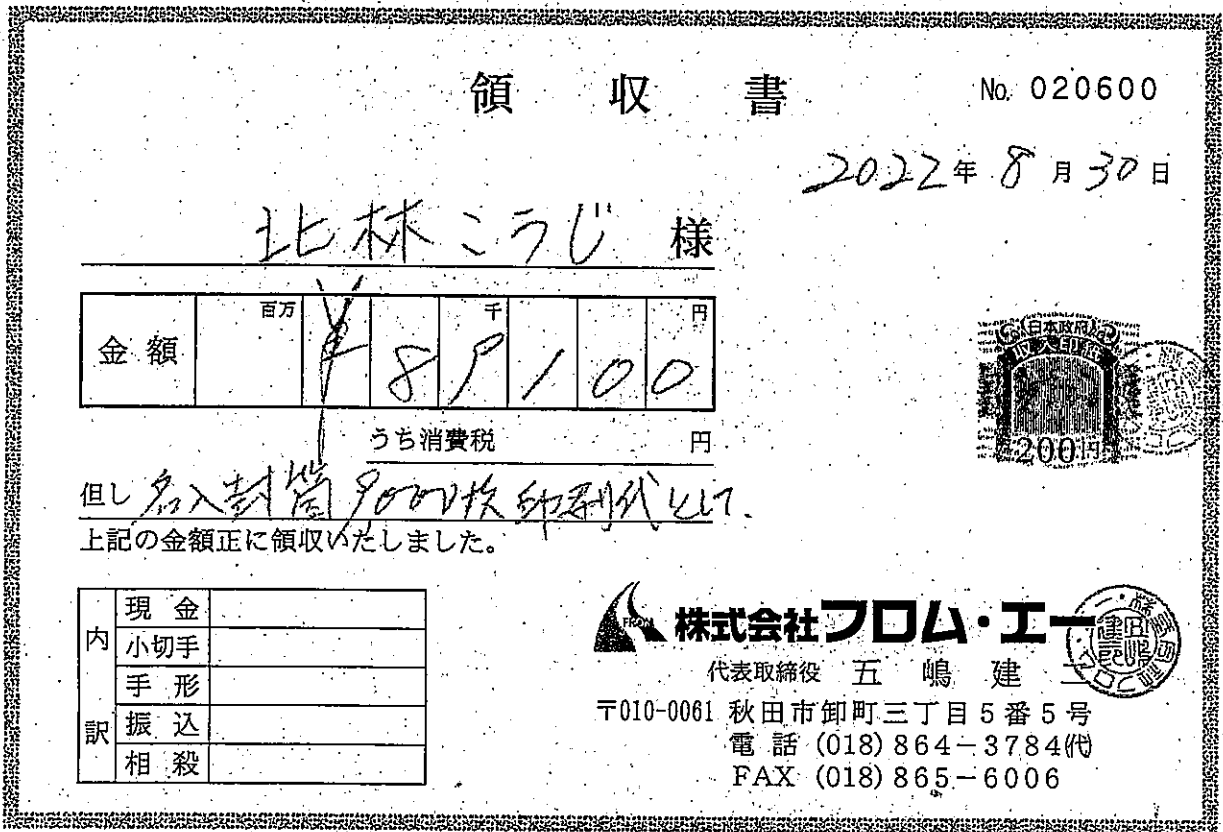 領収書
No. 020600
2022年8月30日
北林こうじ 様
金額 百万 千 円
¥89100
うち消費税 円
但し 名入封筒9000枚印刷代として
上記の金額正に領収いたしました。
日本政府
収入印紙
200円
内訳
現金
小切手
手形
振込
相殺
FROM
株式会社フロム・エー
代表取締役 五嶋建
〒010-0061 秋田市卸町三丁目5番5号
電話 (018) 864-3784㈹
FAX (018) 865-6006